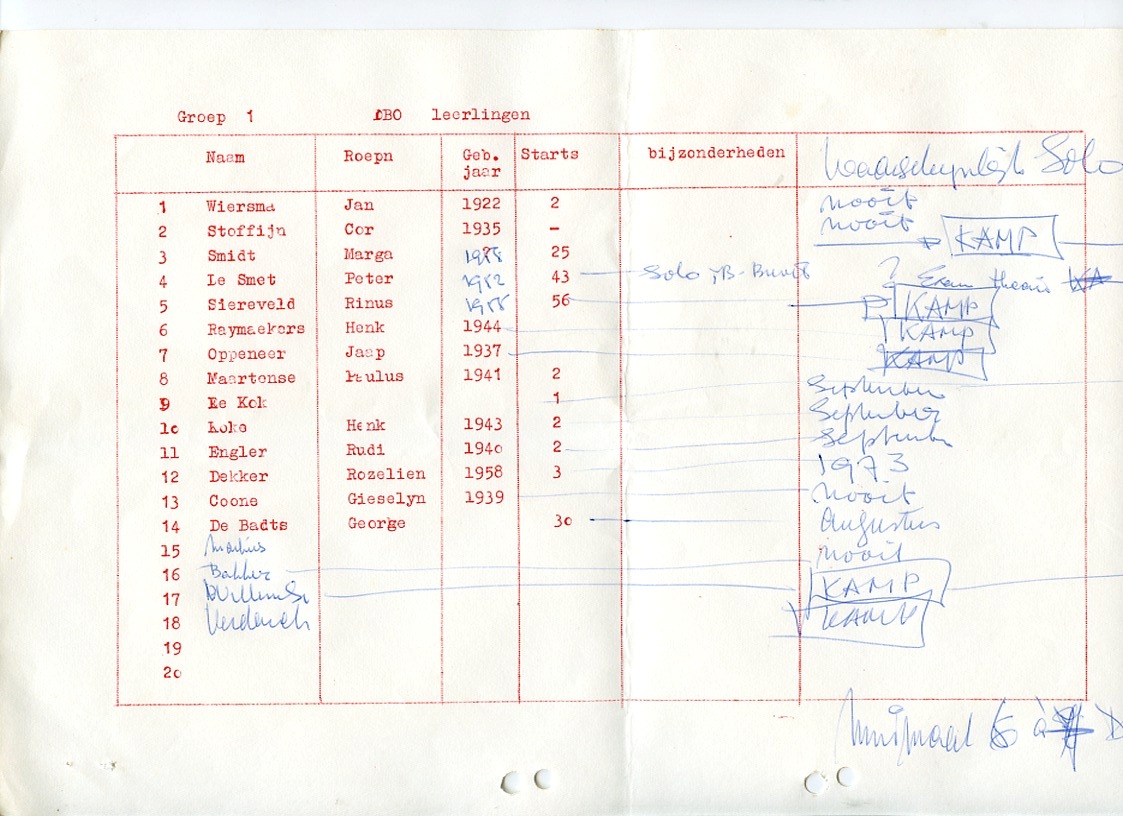 Groep 1 DBO leerlingen
Naam Roepn Geb. jaar Starts bijzonderheden Waarschynlijk Solo
1 Wiersma Jan 1922 2 nooit
2 Stoffijn Cor 1935 - nooit
3 Smidt Marga 25 KAMP
4 Le Smet Peter 1952 43 Solo, B-Brevet ? Exam theorie
5 Siereveld Rinus 56 KAMP
6 Raymaekers Henk 1944 KAMP
7 Oppeneer Jaap 1937 KAMP
8 Maartense Paulus 1941 2 September
9 De Kok 1 September
10 Koke Henk 1943 2 September
11 Engler Rudi 1940 2 1973
12 Dekker Rozelien 1958 3 nooit
13 Coone Gieselyn 1939
14 De Badts George 30 Augustus
15 nooit
16 Bakker KAMP
17 KAMP
18
19
20
Minimaal 6 à